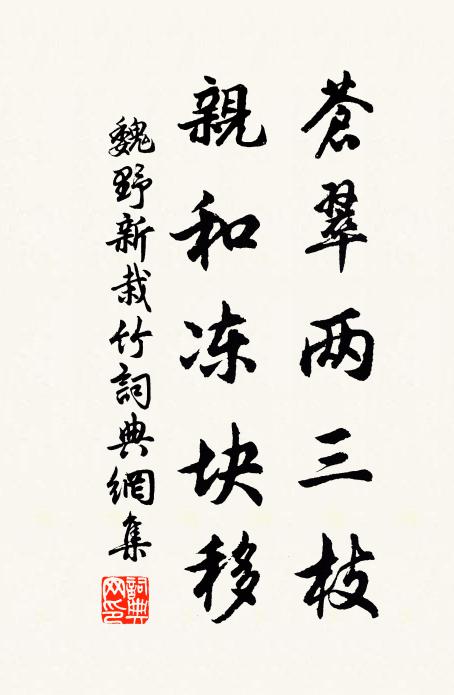 蒼翠两三枝
親和冻块移
魏野新栽竹詞典網集
詞典网印